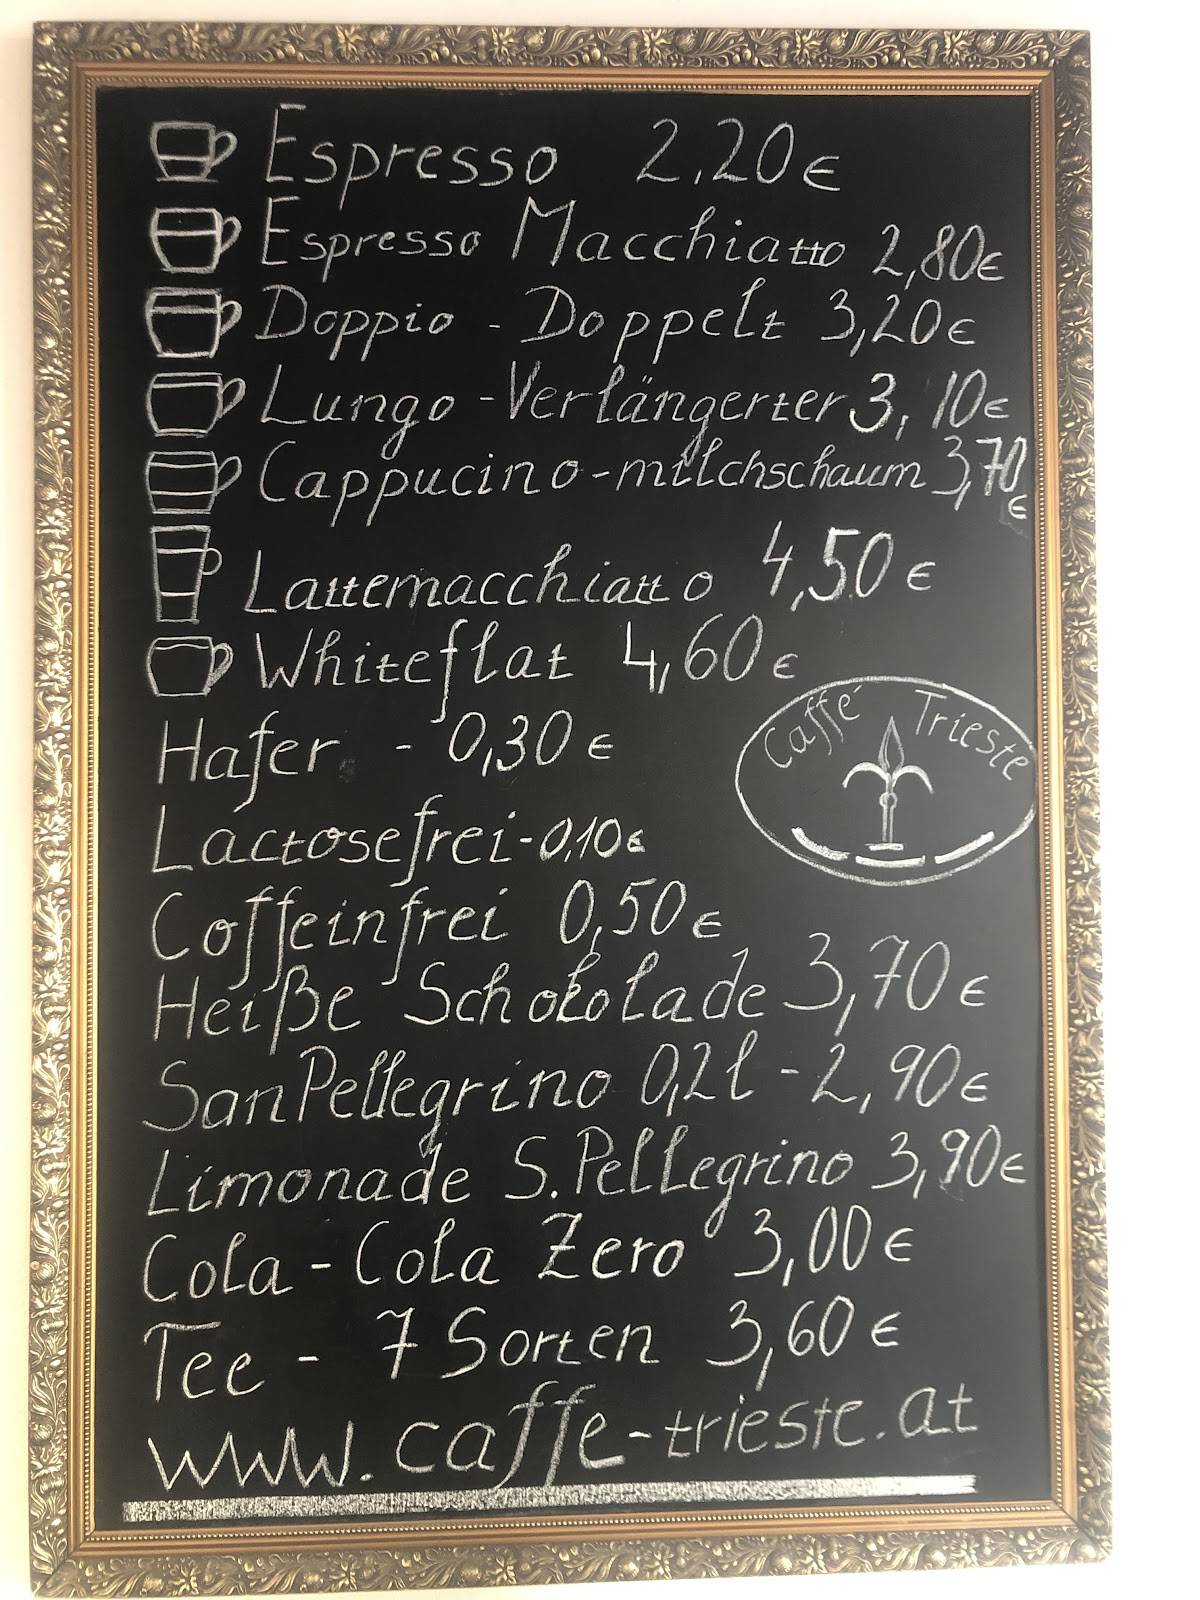 Espresso 2,20€
Espresso Macchiatto 2,80€
Doppio - Doppelt 3,20€
Lungo - Verlängerter 3,10€
Cappucino - milchschaum 3,70€
Lattemacchiatto 4,50€
Whiteflat 4,60€
Caffé Trieste
Hafer - 0,30€
Lactosefrei - 0,10€
Coffeinfrei 0,50€
Heiße Schokolade 3,70€
San Pellegrino 0,2l - 2,90€
Limonade S. Pellegrino 3,90€
Cola - Cola Zero 3,00€
Tee - 7 Sorten 3,60€
www.caffe-trieste.at